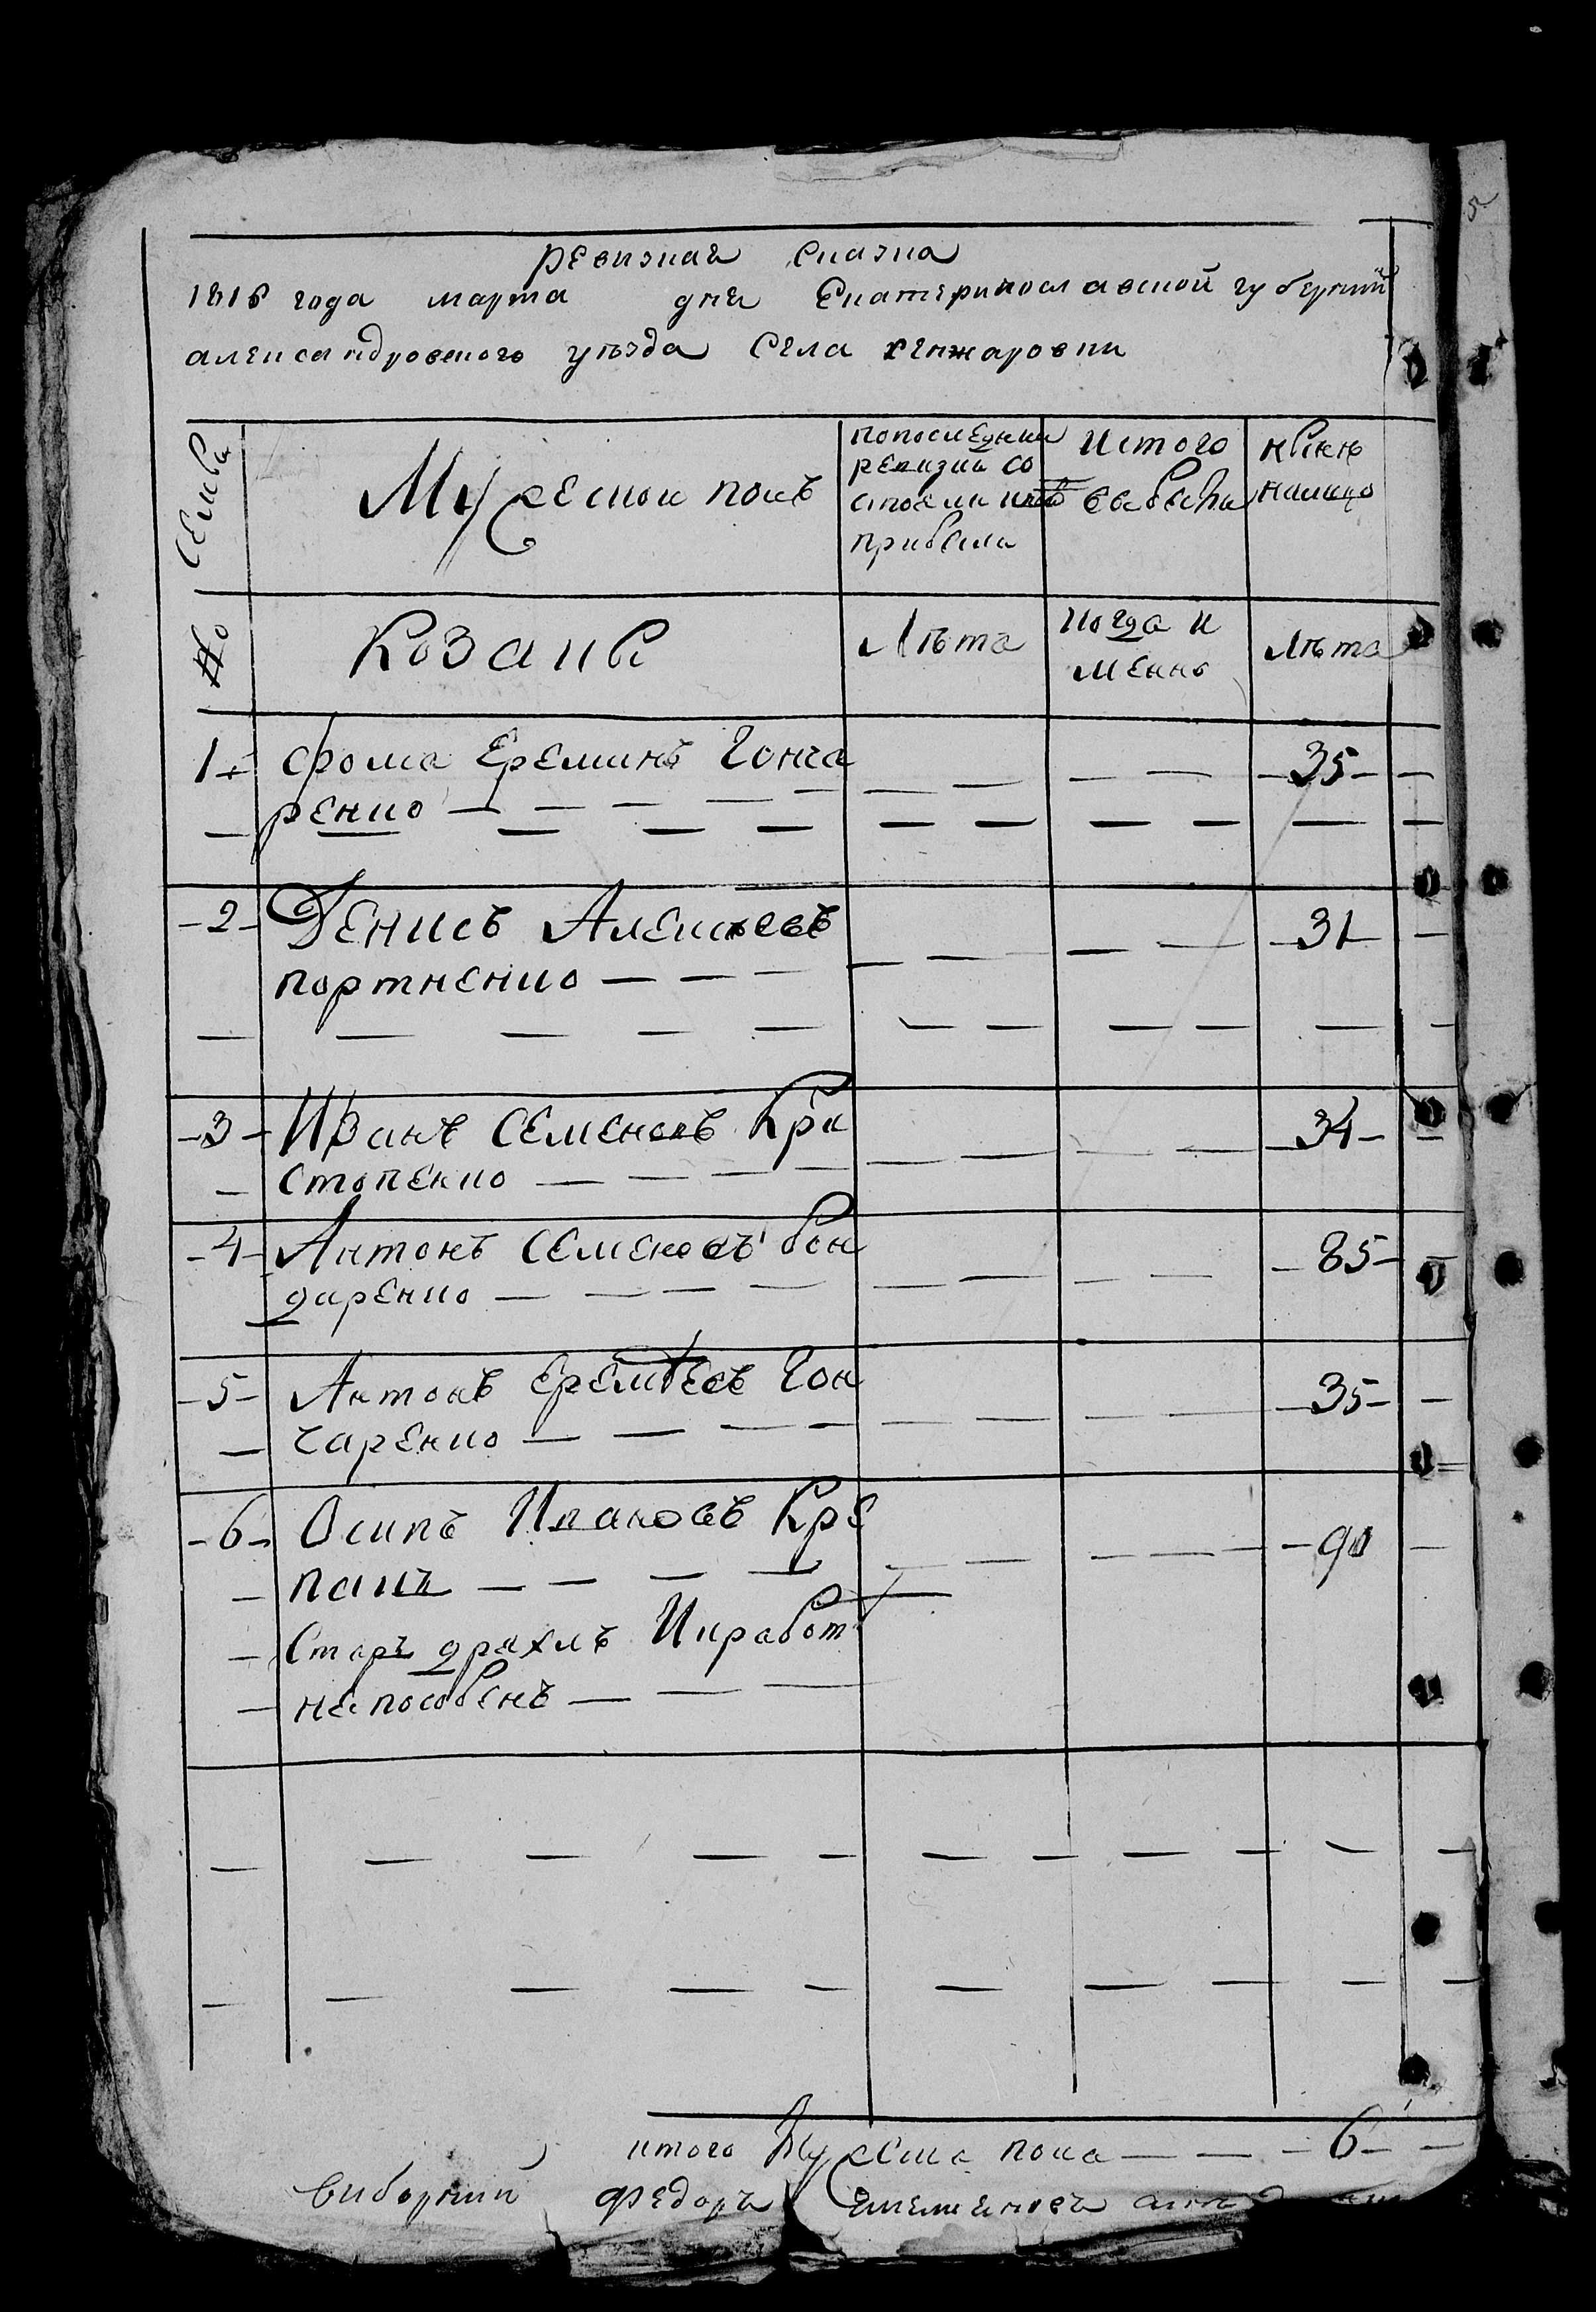 Ревизкая Сказка
1816 года марта дня Екатеринославской губернии
александровского уезда Села кенжаровки
Семьи
Мужеской полъ
попоследнии
ревизии со
стояли и
прибыли
Истого
выбыли
Нынѣ
налицо
№
Козаки
Лѣта
Когда и
менно
Лѣта
1 Фома Ереминъ Гонча 35
ренко
2 Денисъ Алексѣевъ 31
портненко
3 Иванъ Семеновъ Кри 34
стопенко
4 Антонъ Семеновъ бон 85
даренко
5 Антонъ Еремѣевъ Гон 35
чаренко
6 Осипъ Ивановъ Кре 90
пакъ
Старъ дряхлъ Икработ
неспособенъ
итого Мужеска пола 6
Виборний Федоръ